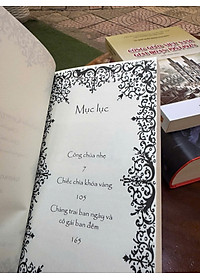 Mục lục
Công chúa nhẹ
7
Chiếc chìa khóa vàng
105
Chàng trai ban ngày và
cô gái ban đêm
165